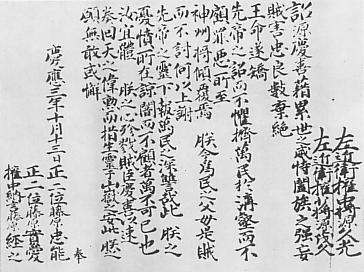 左近衛權中將源久光
左近衛權少將源茂久
詔源慶喜藉累世之威恃闔族之強妄
賊害忠良數棄絶
王命遂矯
先帝之詔而不懼擠萬民於溝壑而不
顧罪惡所至
神州將傾覆焉 朕今為民之父母是賊
而不討何以上謝
先帝之靈下報萬民之深讐哉此 朕之
憂憤所在諒闇而不顧者萬不可已也
汝宜體 朕之心殄戮賊臣慶喜以速
奏回天之偉勲而措生靈于山嶽之安此 朕之
願無敢或懈
慶應三年十月十三日 正二位藤原忠能 奉
正二位藤原實愛
權中納言藤原經之